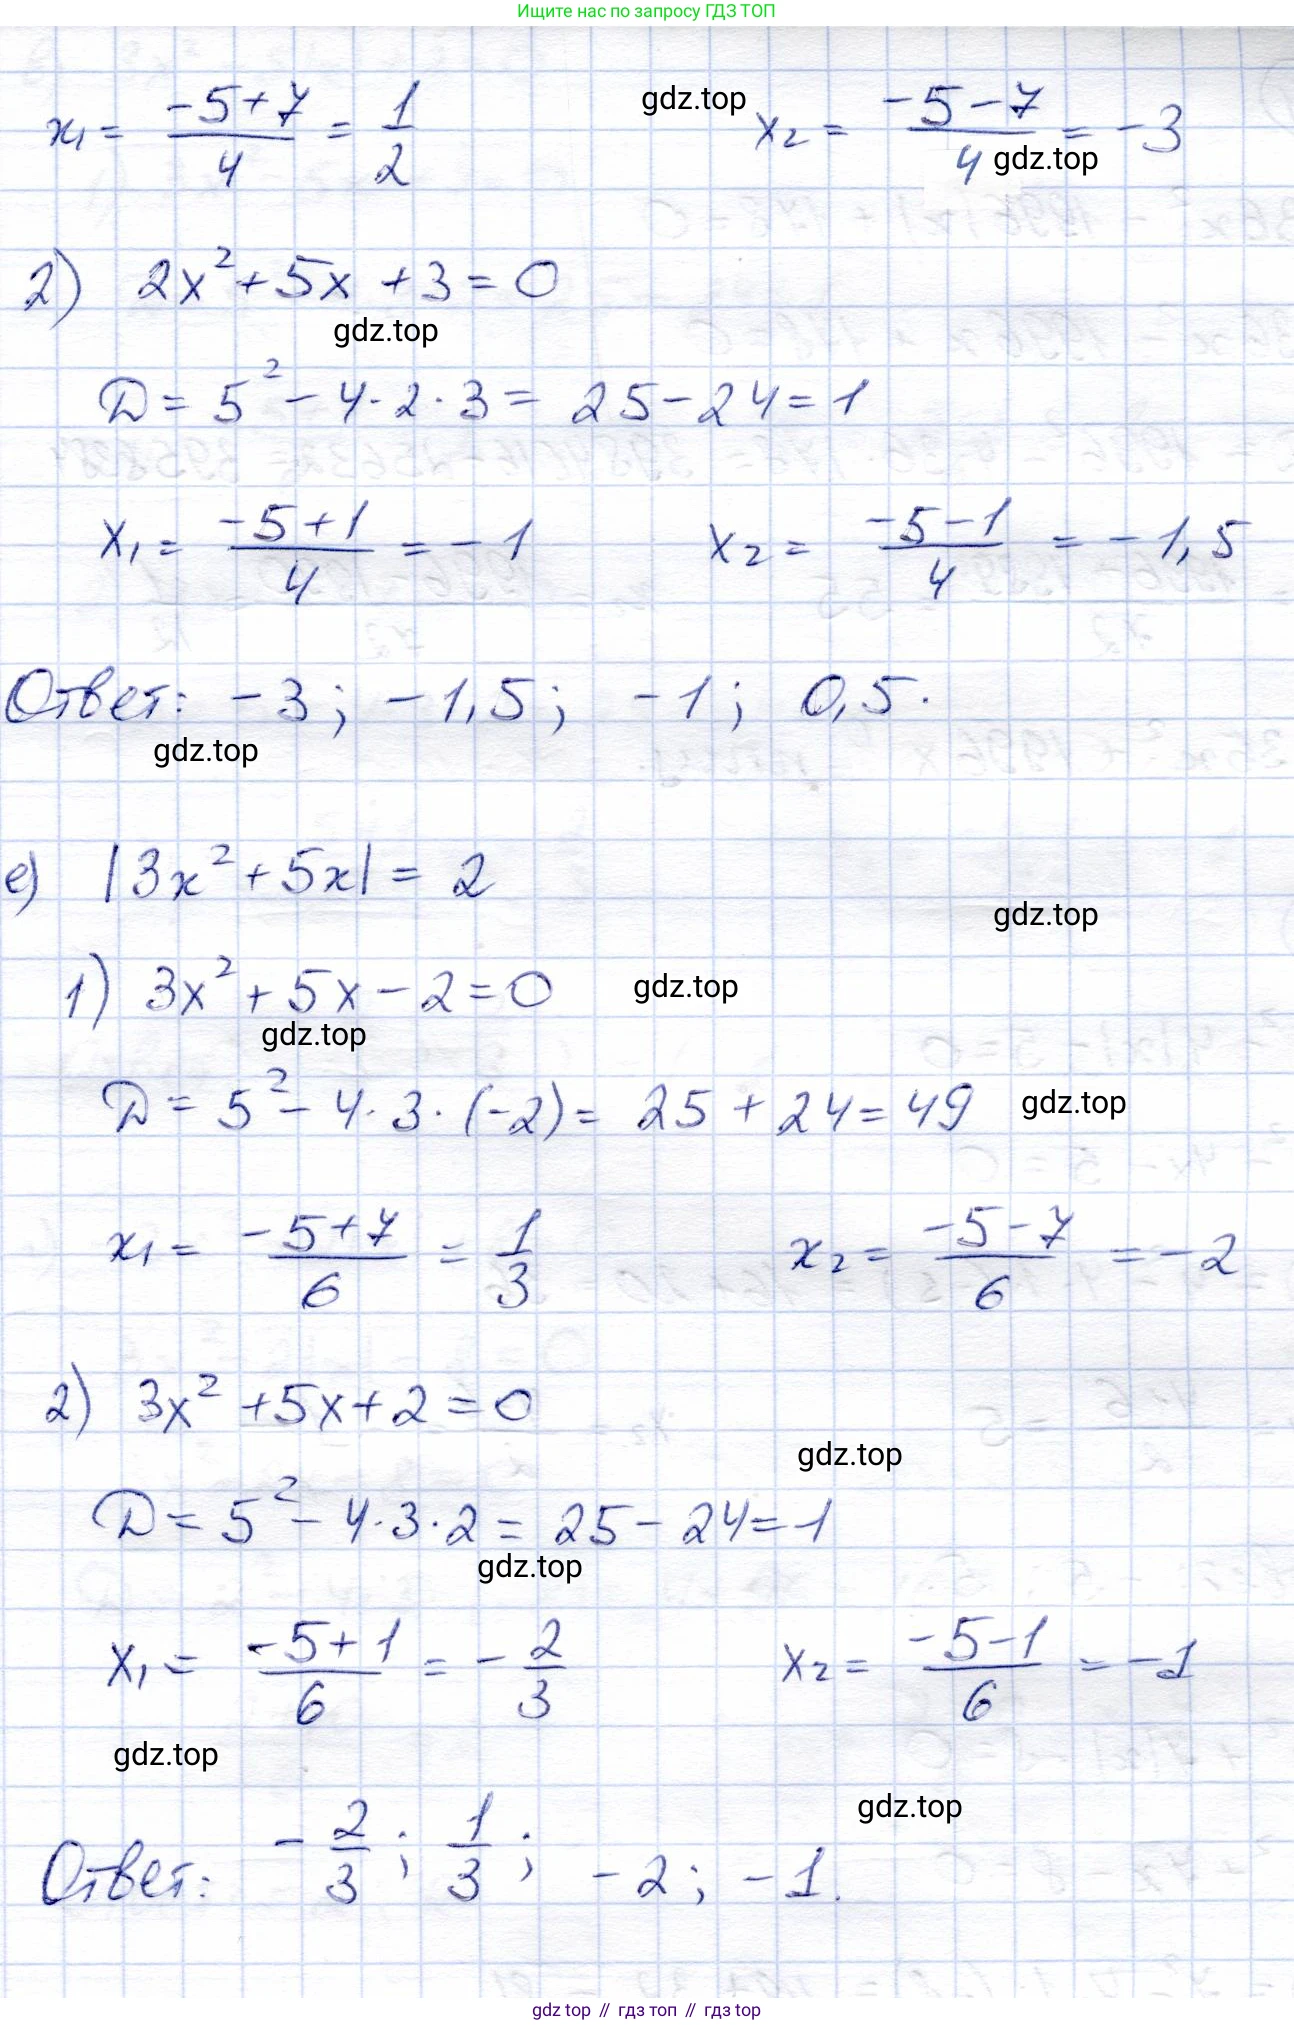 Ищите нас по запросу ГДЗ ТОП
x₁ = (-5+7)/4 = 1/2    gdz.top    x₂ = (-5-7)/4 = -3
gdz.top
2) 2x² + 5x + 3 = 0
gdz.top
D = 5² - 4·2·3 = 25 - 24 = 1
x₁ = (-5+1)/4 = -1    x₂ = (-5-1)/4 = -1,5
Ответ: -3; -1,5; -1; 0,5.
gdz.top
е) |3x² + 5x| = 2
gdz.top
1) 3x² + 5x - 2 = 0    gdz.top
gdz.top
D = 5² - 4·3·(-2) = 25 + 24 = 49    gdz.top
x₁ = (-5+7)/6 = 1/3    x₂ = (-5-7)/6 = -2
2) 3x² + 5x + 2 = 0
gdz.top
D = 5² - 4·3·2 = 25 - 24 = 1
gdz.top
x₁ = (-5+1)/6 = -2/3    x₂ = (-5-1)/6 = -1
gdz.top
gdz.top
Ответ: -2/3; 1/3; -2; -1.
gdz top // гдз топ // гдз top